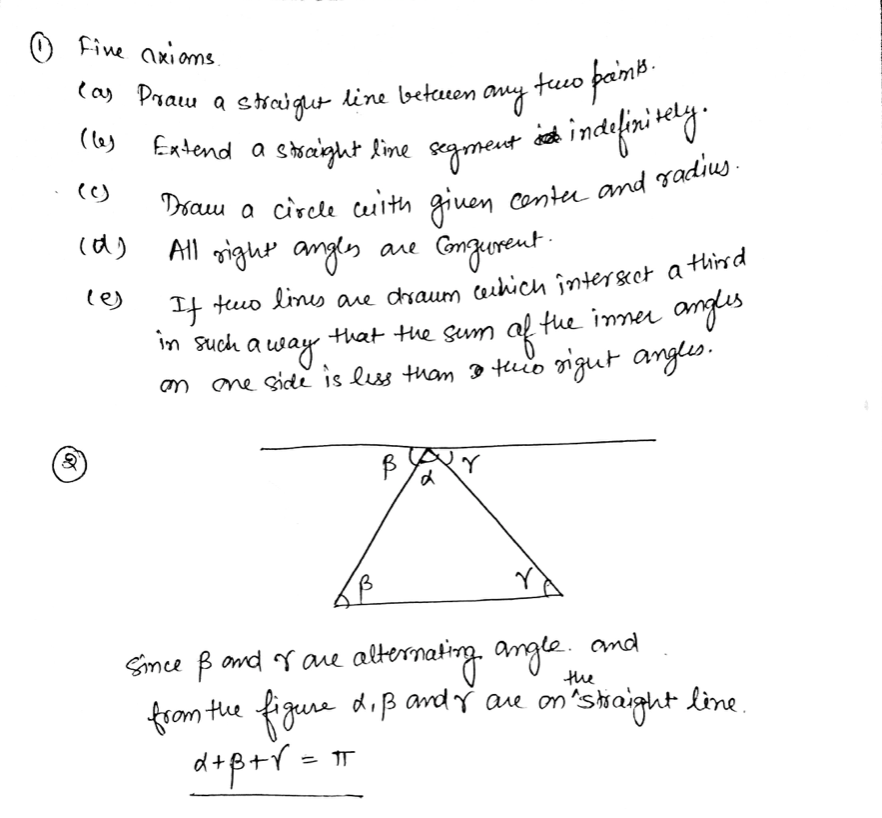 ① Five axioms.
(a) Draw a straight line between any two points.
(b) Extend a straight line segment indefinitely.
(c) Draw a circle with given center and radius.
(d) All right angles are Congurent.
(e) If two lines are drawn which intersect a third
in such a way that the sum of the inner angles
on one side is less than two right angles.
②
β γ
α
β γ
Since β and γ are alternating angle. and
from the figure α, β and γ are on the straight line.
α+β+γ = π